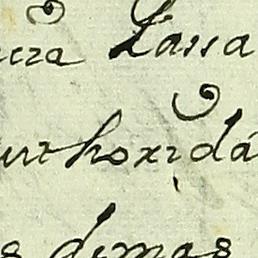 cra Lassa
uthoridá
s demas